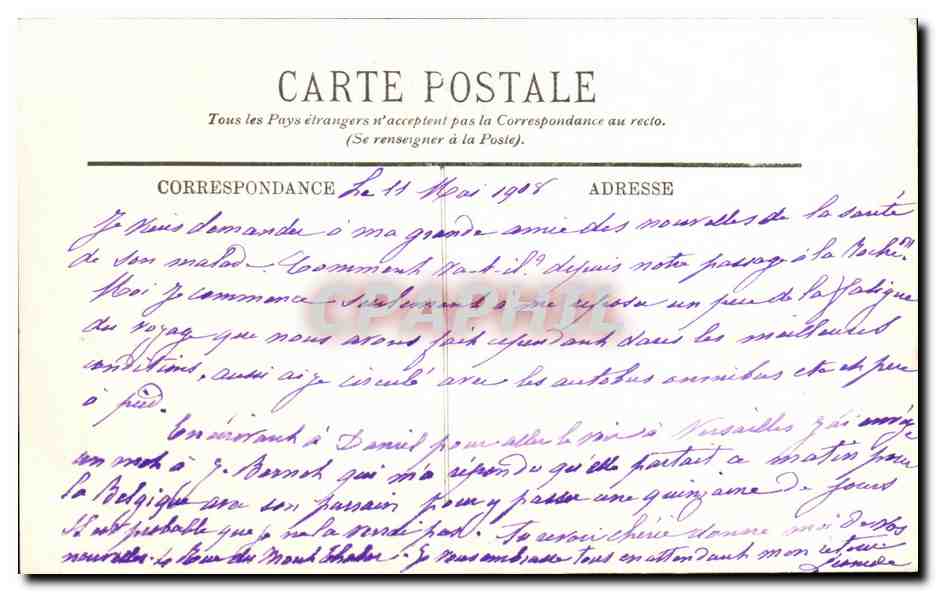 CARTE POSTALE
Tous les Pays étrangers n'acceptent pas la Correspondance au recto.
(Se renseigner à la Poste).
CORRESPONDANCE Le 11 Mai 1908 ADRESSE
Je viens demander à ma grande amie des nouvelles de la santé
de son malade. Comment va-t-il? depuis notre passage à la Roche.
Moi je commence seulement à me reposer un peu de la fatigue
du voyage que nous avons fait cependant dans les meilleures
conditions, aussi ai je circulé avec les autobus omnibus etc et peu
à pied.
En écrivant à Daniel pour aller le voir à Versailles j'ai envoyé
un mot à J. qui m'a répondu qu'elle partait ce matin pour
la Belgique avec son parrain pour y passer une quinzaine de jours
Il est probable que je ne la verrai pas. chérie donne moi de vos
nouvelles. Rue du Mont Thabor. Je vous embrasse tous en attendant mon retour
CPAPHIL